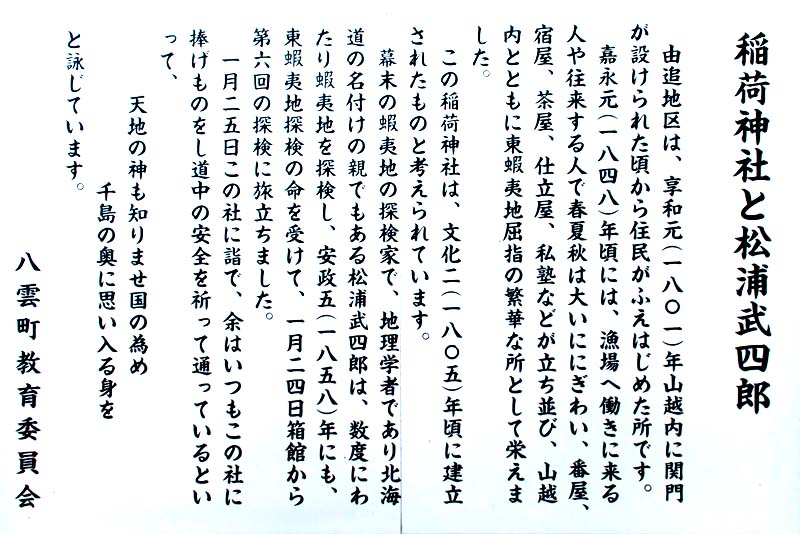 稲荷神社と松浦武四郎
由追地区は、享和元(一八〇一)年山越内に関門
が設けられた頃から住民がふえはじめた所です。
嘉永元(一八四八)年頃には、漁場へ働きに来る
人や往来する人で春夏秋は大いににぎわい、番屋、
宿屋、茶屋、仕立屋、私塾などが立ち並び、山越
内とともに東蝦夷地屈指の繁華な所として栄えま
した。
この稲荷神社は、文化二(一八〇五)年頃に建立
されたものと考えられています。
幕末の蝦夷地の探検家で、地理学者であり北海
道の名付けの親でもある松浦武四郎は、数度にわ
たり蝦夷地を探検し、安政五(一八五八)年にも、
東蝦夷地探検の命を受けて、一月二四日箱館から
第六回の探検に旅立ちました。
一月二五日この社に詣で、余はいつもこの社に
捧げものをし道中の安全を祈って通っているとい
って、
天地の神も知りませ国の為め
千島の奥に思い入る身を
と詠じています。
八雲町教育委員会